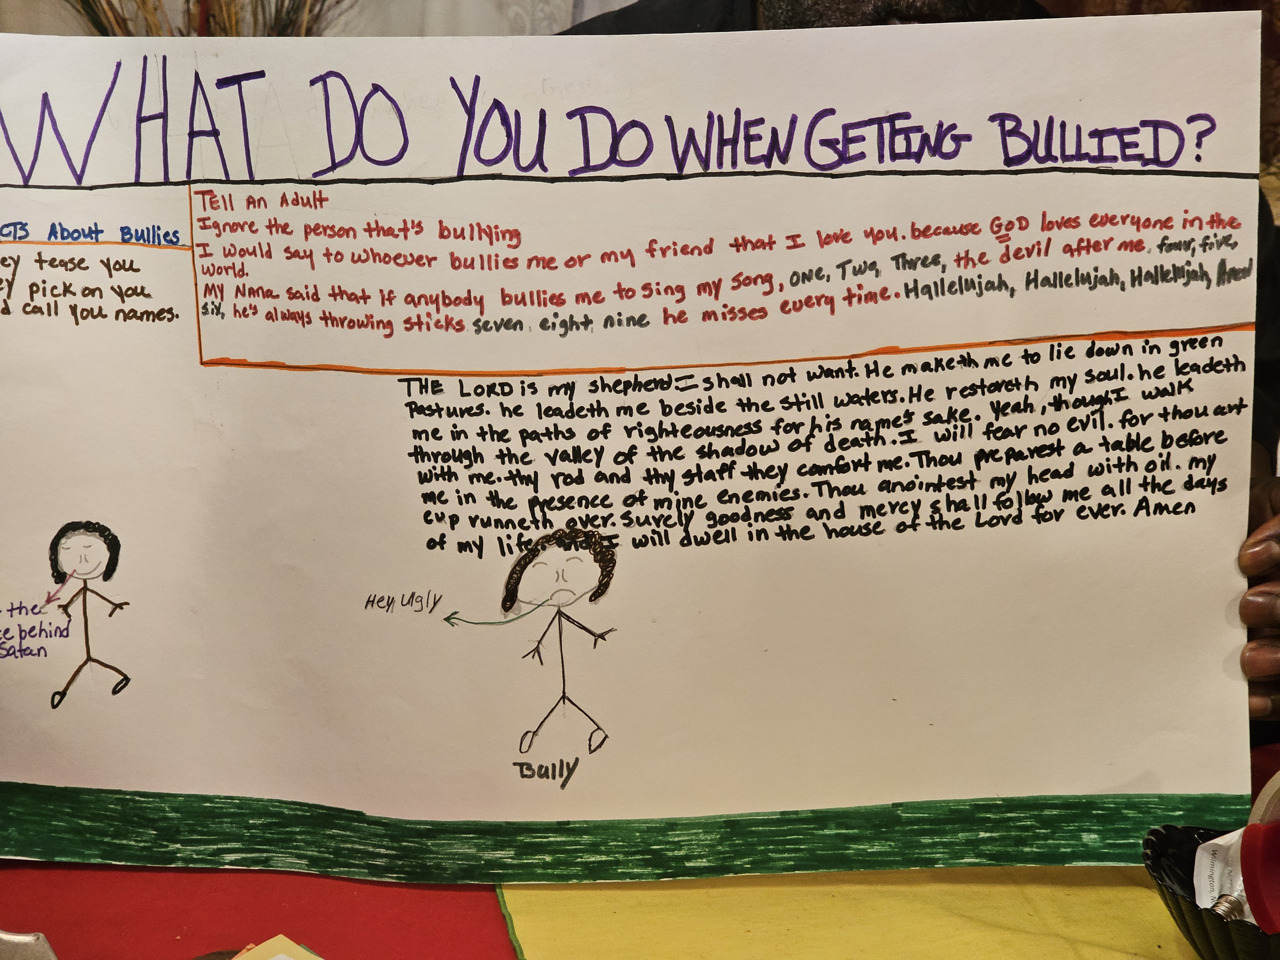 WHAT DO YOU DO WHEN GETTING BULLIED?
CTS About Bullies
ey tease you
ey pick on you
d call you names.
Tell An Adult
Ignore the person that's bullying
I would say to whoever bullies me or my friend that I love you. because GOD loves everyone in the
world.
My Nana said that if anybody bullies me to sing my song, ONE, Two, Three, the devil after me. four, five,
six, he's always throwing sticks seven, eight, nine he misses every time. Hallelujah, Hallelujah, Hallelujah, Amen
THE LORD is my shepherd I shall not want. He maketh me to lie down in green
Pastures. he leadeth me beside the still waters. He restoreth my soul. he leadeth
me in the paths of righteousness for his name's sake. Yeah, though I walk
through the valley of the shadow of death. I will fear no evil. for thou art
with me. thy rod and thy staff they comfort me. Thou preparest a table before
me in the presence of mine enemies. Thou anointest my head with oil. my
cup runneth over. Surely goodness and mercy shall follow me all the days
of my life. and I will dwell in the house of the Lord for ever. Amen
the
e behind
Satan
Hey, Ugly
Bully
Wilmington,